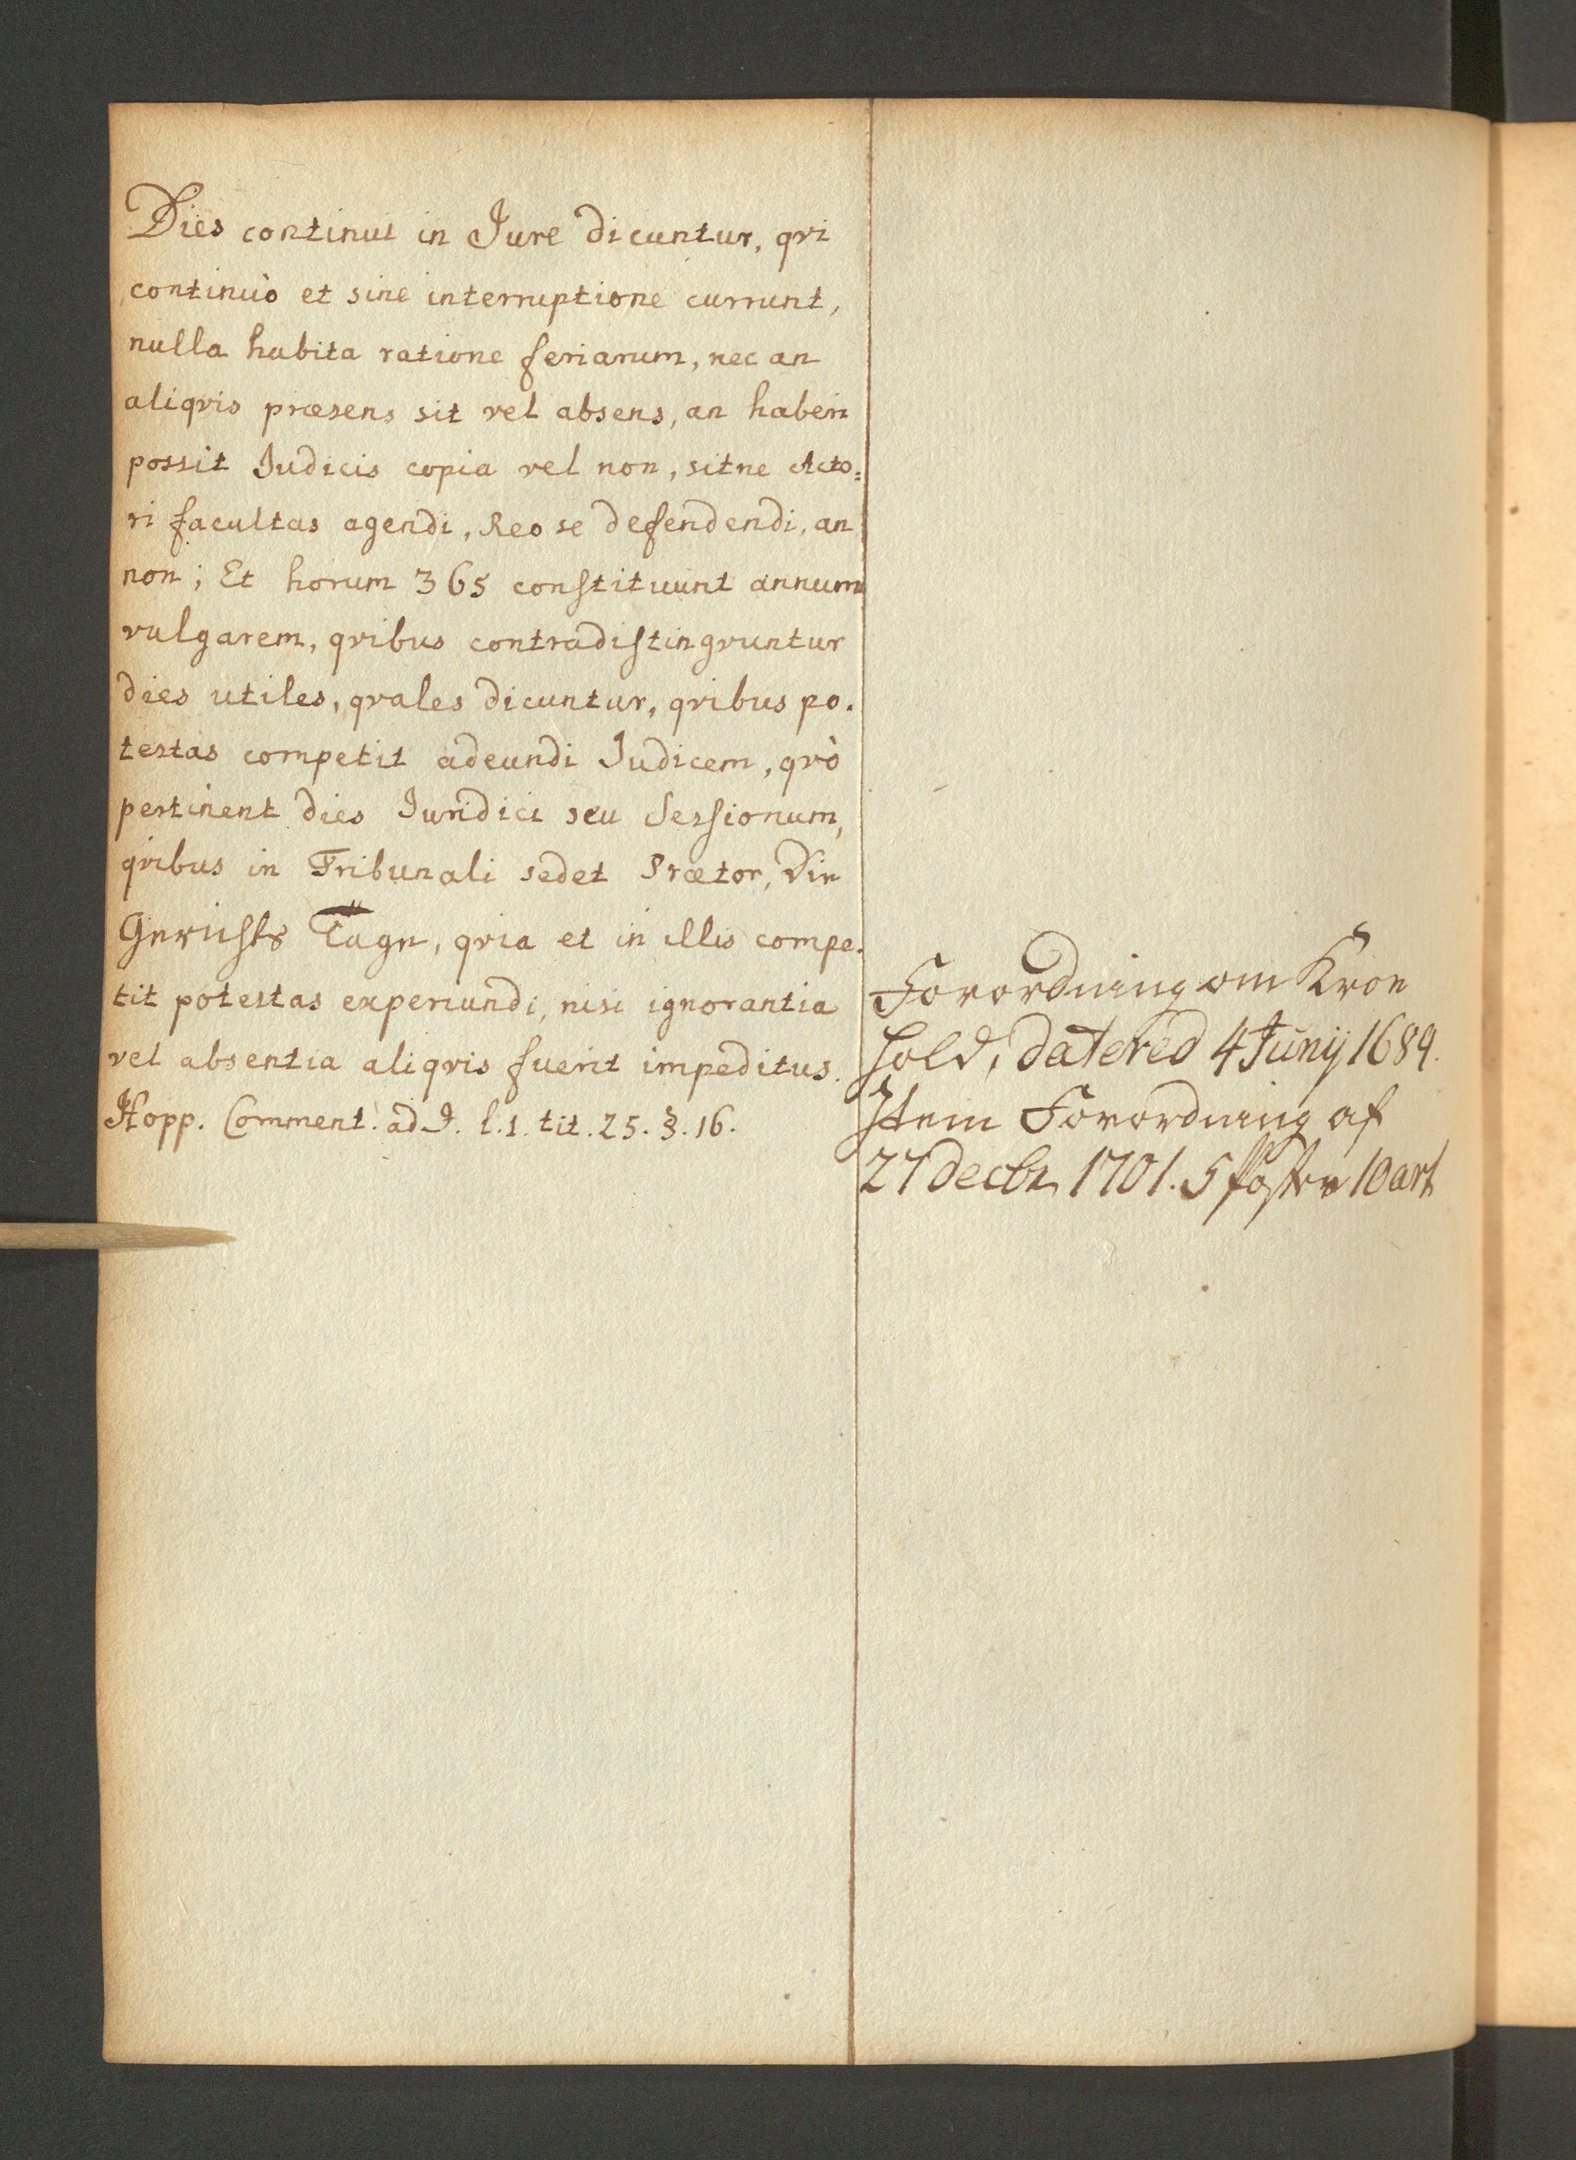 Dies continui in Jure dicuntur, qvi
continuò et sine interruptione currunt,
nulla habita ratione feriarum, nec an
aliqvis præsens sit vel absens, an haberi
possit Judicis copia vel non, sitne Acto=
ri facultas agendi, Reo se defendendi, an
non; Et horum 365 constituunt annum
vulgarem, qvibus contradistingvuntur
dies utiles, qvales dicuntur, qvibus po-
testas competit adeundi Judicem, qvò
pertinent dies Juridici seu Sessionum,
qvibus in Tribunali sedet Prætor, Die
Gerichts Tage, qvia et in illis compe-
tit potestas experiundi, nisi ignorantia
vel absentia aliqvis fuerit impeditus.
Hopp. Comment. ad J. l. 1. tit. 25. §. 16.
Forordning om Kron
hold, datered 4 Junij 1689.
Item Forordning af
27 decbr 1701. 5 Poster 10 art